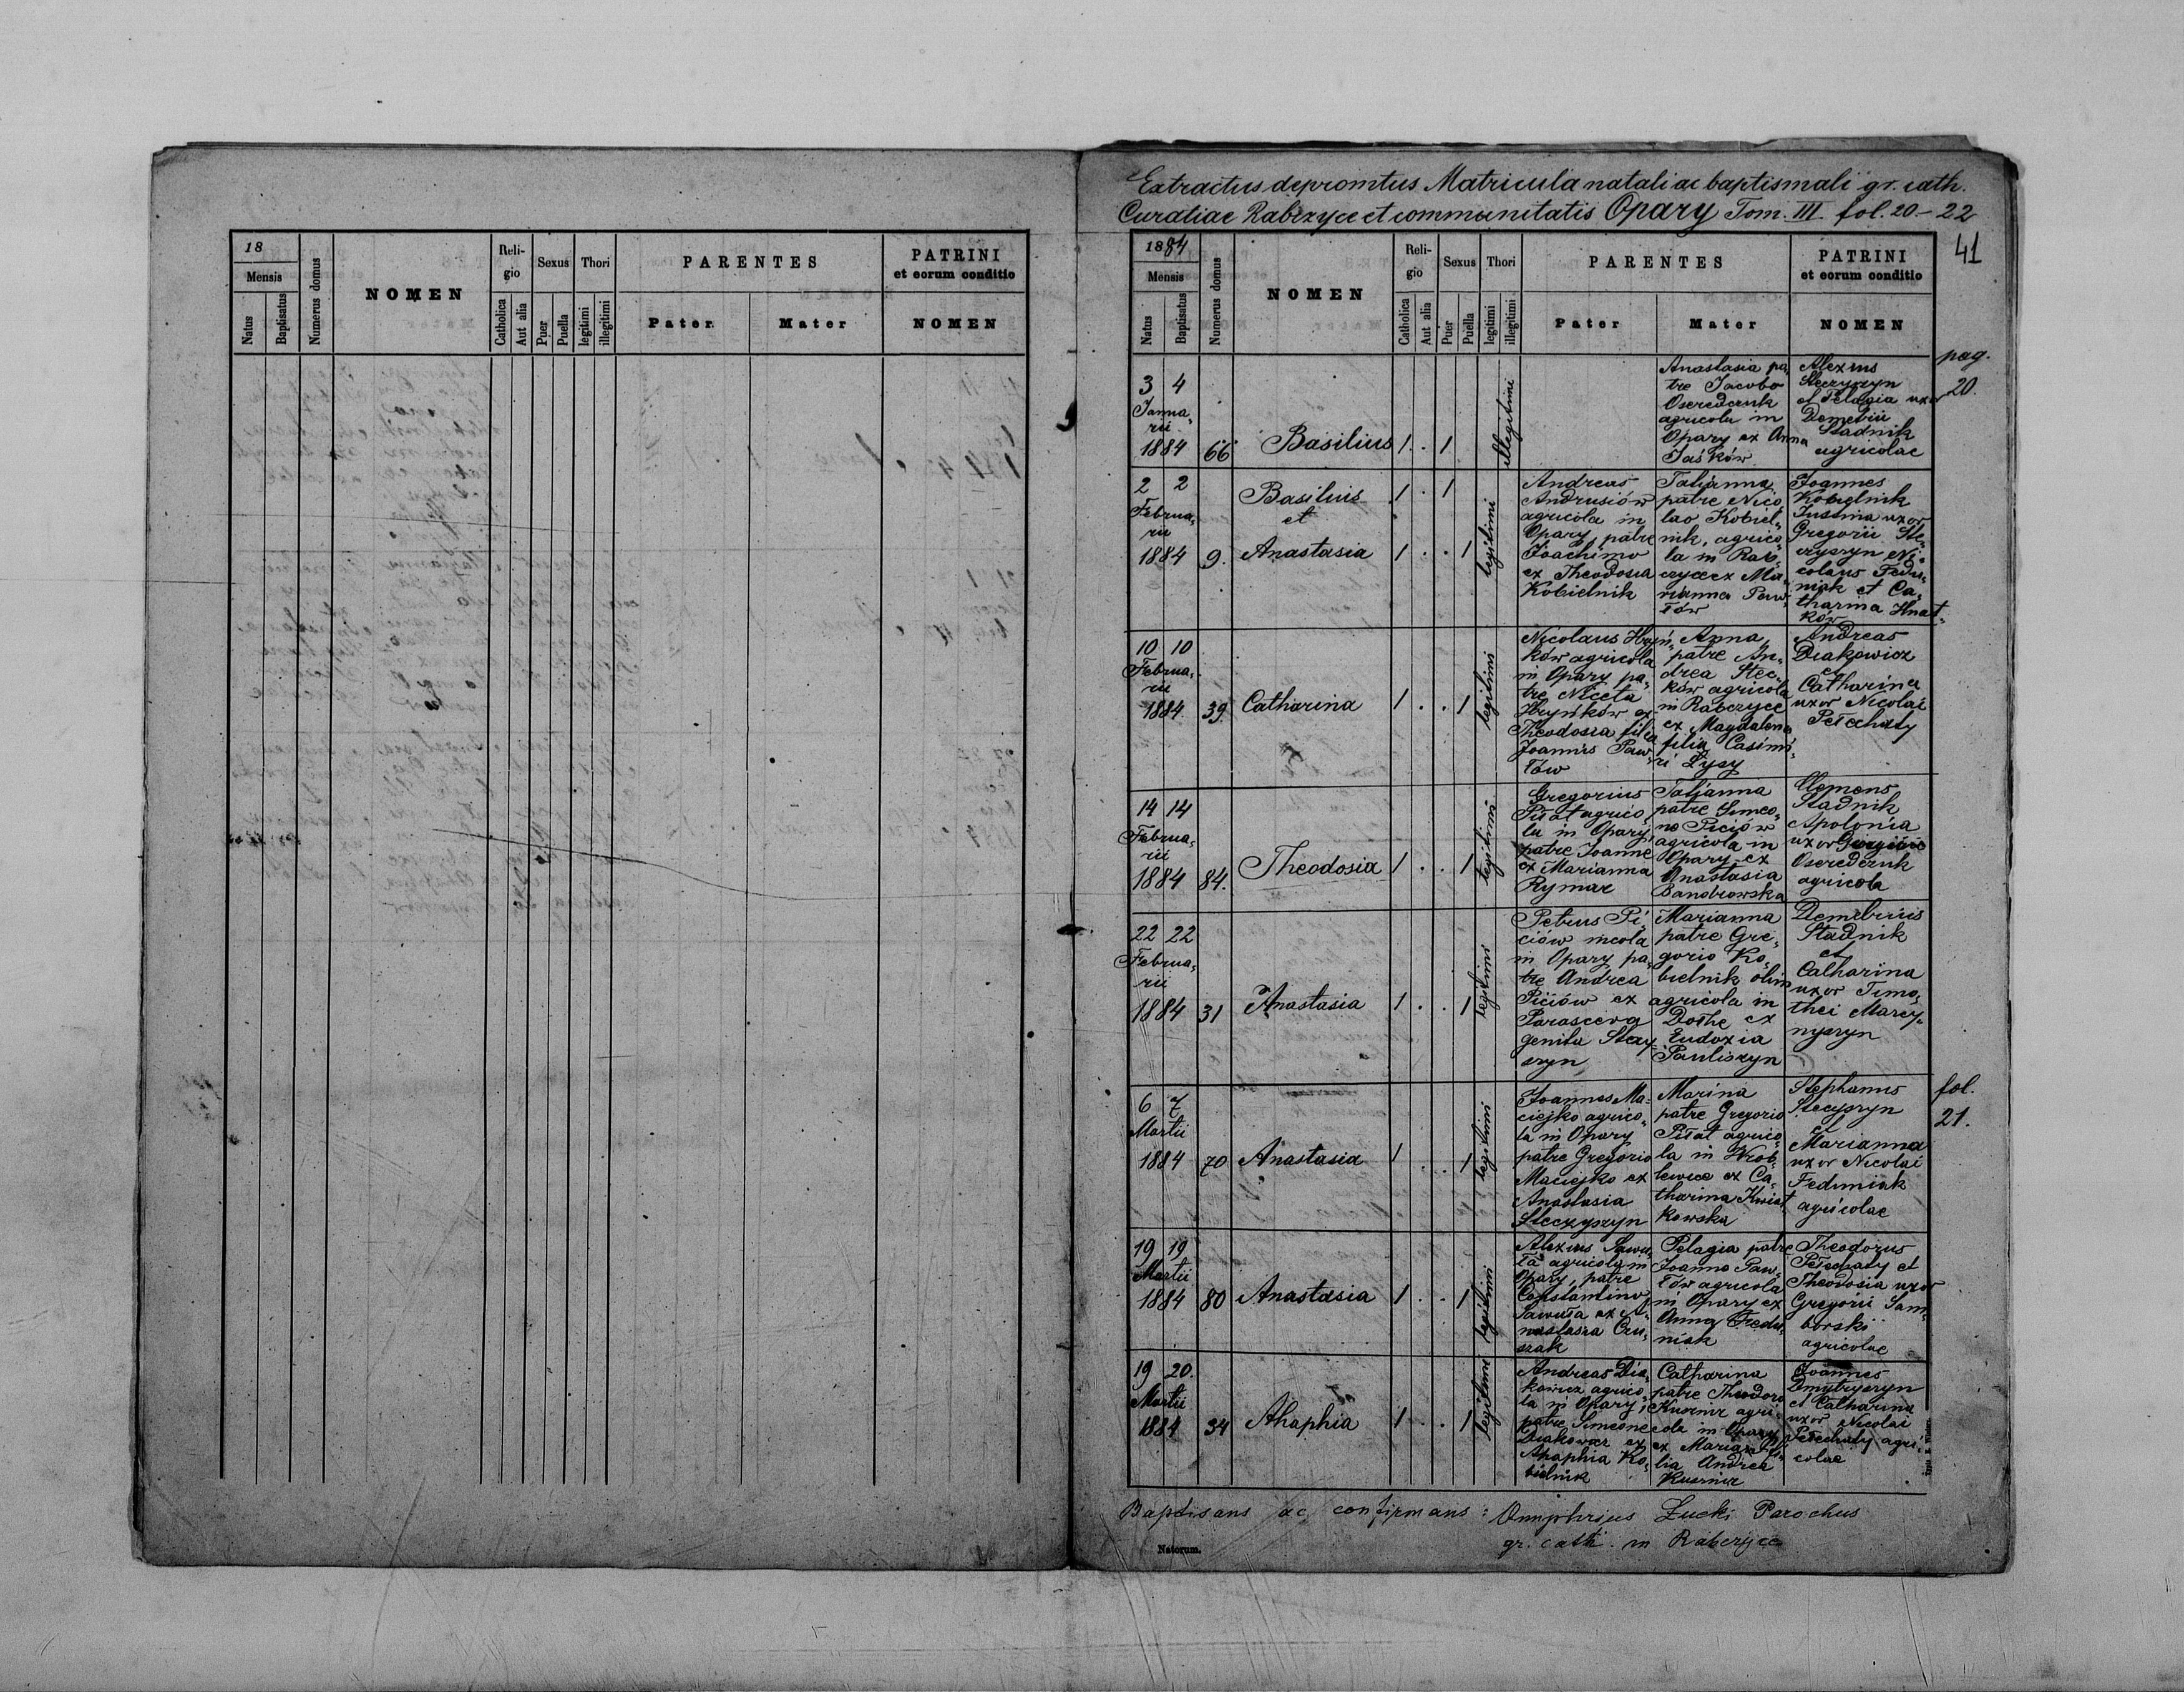 18
Mensis
Natus
Baptisatus
Numerus domus
NOMEN
Reli-
gio
Catholica
Aut alia
Sexus
Puer
Puella
Thori
legitimi
illegitimi
PARENTES
Pater
Mater
PATRINI
et eorum conditio
NOMEN
Extractus depromtus Matricula natali ac baptismali gr. cath.
Curatiae Rabczyce et communitatis Opary Tom. III. fol. 20-22
41
1884
Mensis
Natus
Baptisatus
Numerus domus
NOMEN
Reli-
gio
Catholica
Aut alia
Sexus
Puer
Puella
Thori
legitimi
illegitimi
PARENTES
Pater
Mater
PATRINI
et eorum conditio
NOMEN
pag.
20.
3 4
Janua„
rii
1884
66
Basilius
1 . 1
illegitimi
Anastasia pa„
tre Jacobo
Oseredczuk
agricola in
Opary ex Anna
Jaśków
Alexius
Steczyszyn
et Pelagia uxor
Demetrii
Stadnik
agricolae
2 2
Februa„
rii
1884
9.
Basilius
et
Anastasia
1 . 1
1 . . 1
legitimi
Andreas
Andrusiów
agricola in
Opary, patre
Joachimo
ex Theodosia
Kobielnik
Tatianna
patre Nico„
lao Kobiel„
nik, agrico„
la in Rab„
czyce ex Ma„
rianna Paw„
łów
Joannes
Kobielnik
Justina uxor
Gregorii Ste„
czyszyn Ni„
colaus Fedu„
niak et Ca„
tharina Hnat„
ków
10 10
Februa„
rii
1884.
39.
Catharina
1 . . 1
legitimi
Nicolaus Hryń„
ków agricola
in Opary pa„
tre Niceta
Hryńków ex
Theodosia filia
Joannis Paw„
łów
Anna
patre An„
drea Stec„
ków agricola
in Rabczyce
ex Magdalena
filia Casimi„
ri Łysy
Andreas
Diakowicz
et
Catharina
uxor Nicolai
Pełechaty
14 14
Februa„
rii
1884
84.
Theodosia
1 . . 1
legitimi
Gregorius
Piłat agrico„
la in Opary,
patre Joanne
ex Marianna
Rymar
Tatianna
patre Simeo„
ne Piciów
agricola in
Opary ex
Anastasia
Bandrowska
Clemens
Stadnik
Apolonia
uxor
Oseredczuk
agricola
22 22
Februa„
rii
1884
31
Anastasia
1 . . 1
legitimi
Petrus Pi„
ciów incola
in Opary pa„
tre Andrea
Piciów ex
Parasceva
genita Steczy„
szyn
Marianna
patre Gre„
gorio Ko„
bielnik olim
agricola in
Dołhe ex
Eudoxia
Pauliszyn
Demetrius
Stadnik
et
Catharina
uxor Timo„
thei Marcy„
nyszyn
fol.
21.
6 7
Martii
1884
70
Anastasia
1 . . 1
legitimi
Joannes Ma„
ciejko agrico„
la in Opary
patre Gregorio
Maciejko ex
Anastasia
Steczyszyn
Marina
patre Gregorio
Piłat agrico„
la in Wrob„
lewice ex Ca„
tharina Kwiat„
kowska
Stephanus
Stecyszyn
et
Marianna
uxor Nicolai
Feduniak
agricolae
19 19
Martii
1884
80
Anastasia
1 . . 1
legitimi
Alexius Sawu„
ła agricola in
Opary, patre
Constantino
Sawuła ex A„
nastasia Cru„
szak
Pelagia patre
Joanne Paw„
łów agricola
in Opary ex
Anna Fedu„
niak
Theodorus
Pełechaty et
Theodosia uxor
Gregorii Sam„
borski
agricolae
19 20.
Martii
1884
34
Ahaphia
1 . . 1
legitimi
Andreas Dia„
kowicz agrico„
la in Opary,
patre Simeone
Diakowicz ex
Ahaphia Ko„
bielnik
Catharina
patre Theodoro
Kusznir agri„
cola in Opary
ex Maria fi„
lia Andrea
Kusznir
Joannes
Dmytryszyn
et Catharina
uxor Nicolai
Pełechaty agri„
colae
Baptisans ac confirmans: Onuphrius Łucki Parochus
gr. cath. in Rabczyce
Natorum.